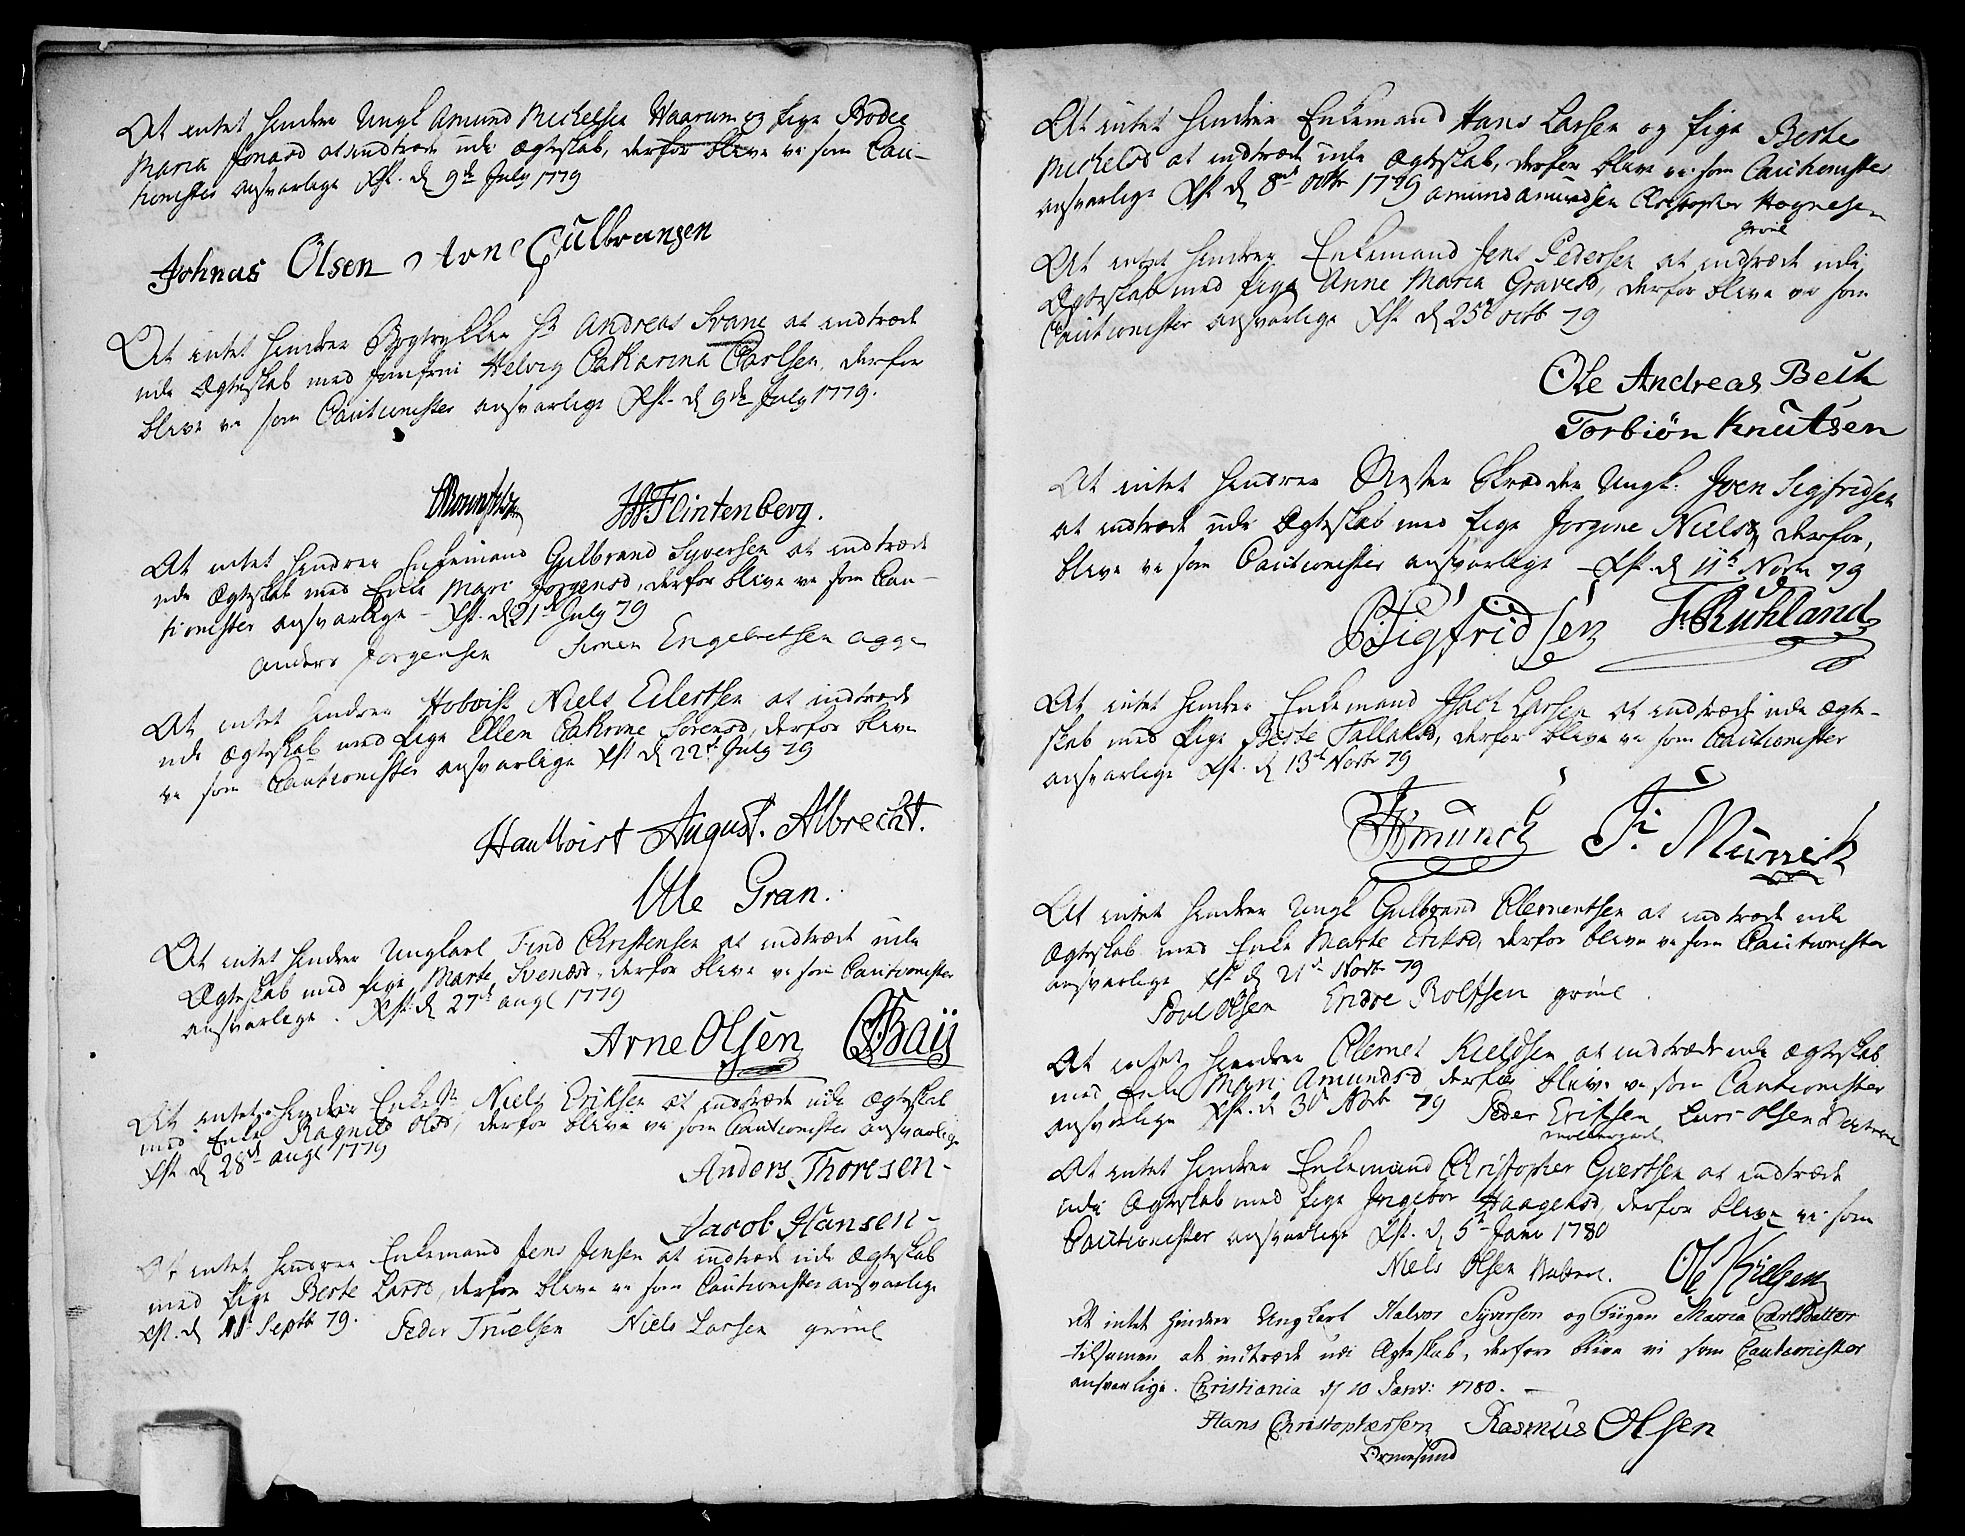 At intet hindrer Ungk Amund Michelsen Waarum og Pige Bodel
Maria Jonasd at indtræde udi Ægteskab, derfor blive vi som Cau-
tionister ansvarlige Xst. d 9de July 1779
Johnas Olsen Arne Gulbransen
At intet hindrer Bogtrykker Hr Andreas Svane at indtræde
udi Ægteskab med Jomfrue Helvig Catharina Carlsen, derfor
blive vi som Cautionister ansvarlige Xst. d 9de July 1779.
HFlintenberg.
At intet hindrer Enkemand Gulbrand Syversen at indtræde
udi Ægteskab med Enke Mari Jorgensd, derfor blive vi som Cau-
tionister ansvarlige - Xst. d 21de July 79
Anders Jorgensen Simen Engebretsen agge
At intet hindrer Hoboist Niels Eilertsen at indtræde
udi Ægteskab med Pige Ellen Cathrine Sørensd, derfor blive
vi som Cautionister ansvarlige Xst d 22de July 79
Hautboist August. Albrecht.
Ole Gran.
At intet hindrer Ungkarl Find Christensen at indtræde udi
Ægteskab med Pige Marte Svensd, derfor blive vi som Cautionister
ansvarlige. Xst. d 27de augl 1779
Arne Olsen Baÿ
At intet hindrer Enkem Niels Eriksen at indtræde udi Ægteskab
med Enke Ragnild Olsd, derfor blive vi som Cautionister ansvarlige
Xst d 28de augl 1779
Anders Thoresen-
Jacob Hansen-
At intet hindrer Enkemand Jens Jensen at indtræde udi Ægteskab
med Pige Berte Larsd, derfor blive vi som Cautionister ansvarlige
Xst. d 11de Septb 79. Peder Truelsen Niels Larsen grønl
At intet hindrer Enkemand Hans Larsen og Pige Berte
Michelsd at indtræde udi Ægteskab, derfor blive vi som Cautionister
ansvarlige Xst d 8de octbr 1779 Amund Amundsen Christopher Hognesen
grønl
At intet hindrer Enkemand Jens Pedersen at indtræde udi
Ægteskab med Pige Anne Maria Gravesd, derfor blive vi som
Cautionister ansvarlige Xst d 25de octb 79
Ole Andreas Beck
Torbiôn Knutsen
At intet hindrer Mester Skrædder Ungk. Iven Sigfridsen
at indtræde udi Ægteskab med Pige Jorgine Nielsd, derfor,
blive vi som Cautionister ansvarlige - Xst. d 11te Novbr 79
PSigfridsen F.Ruhland
At intet hindrer Enkemand Isach Larsen at indtræde udi Ægte-
skab med Pige Berte Tallaksd, derfor blive vi som Cautionister
ansvarlige Xst. d 13de Novbr 79
Munch F: Munck
At intet hindrer Ungk Gulbrand Clementsen at indtræde udi
Ægteskab med Enke Marte Eriksd, derfor blive vi som Cautionister
ansvarlige Xst d 21de Novbr 79
Povel Olsen Endre Rolfsen grönl
At intet hindrer Clemet Kieldsen at indtræde udi Ægteskab
med Enke Mari Amundsd derfor blive vi som Cautionister
ansvarlige Xst. d 30te Novb 79 Peder Eriksen Lars Olsen
At intet hindrer Enkemand Christopher Giertsen at indtræde
udi Ægteskab med Pige Ingebor Haagensd, derfor blive vi som
Cautionister ansvarlige Xst. d 5te Janv 1780
Niels Olsen Ole Nielsen
At intet hindrer Ungkarl Halvor Syversen og Piigen Maria Carlsdatter
tilsamen at indtræde udi Ægteskab, derfore blive vi som Cautionister
ansvarlige. Christiania d 10 Janv: 1780. -
Hans Christophersen Rasmus Olsen
Ormesund